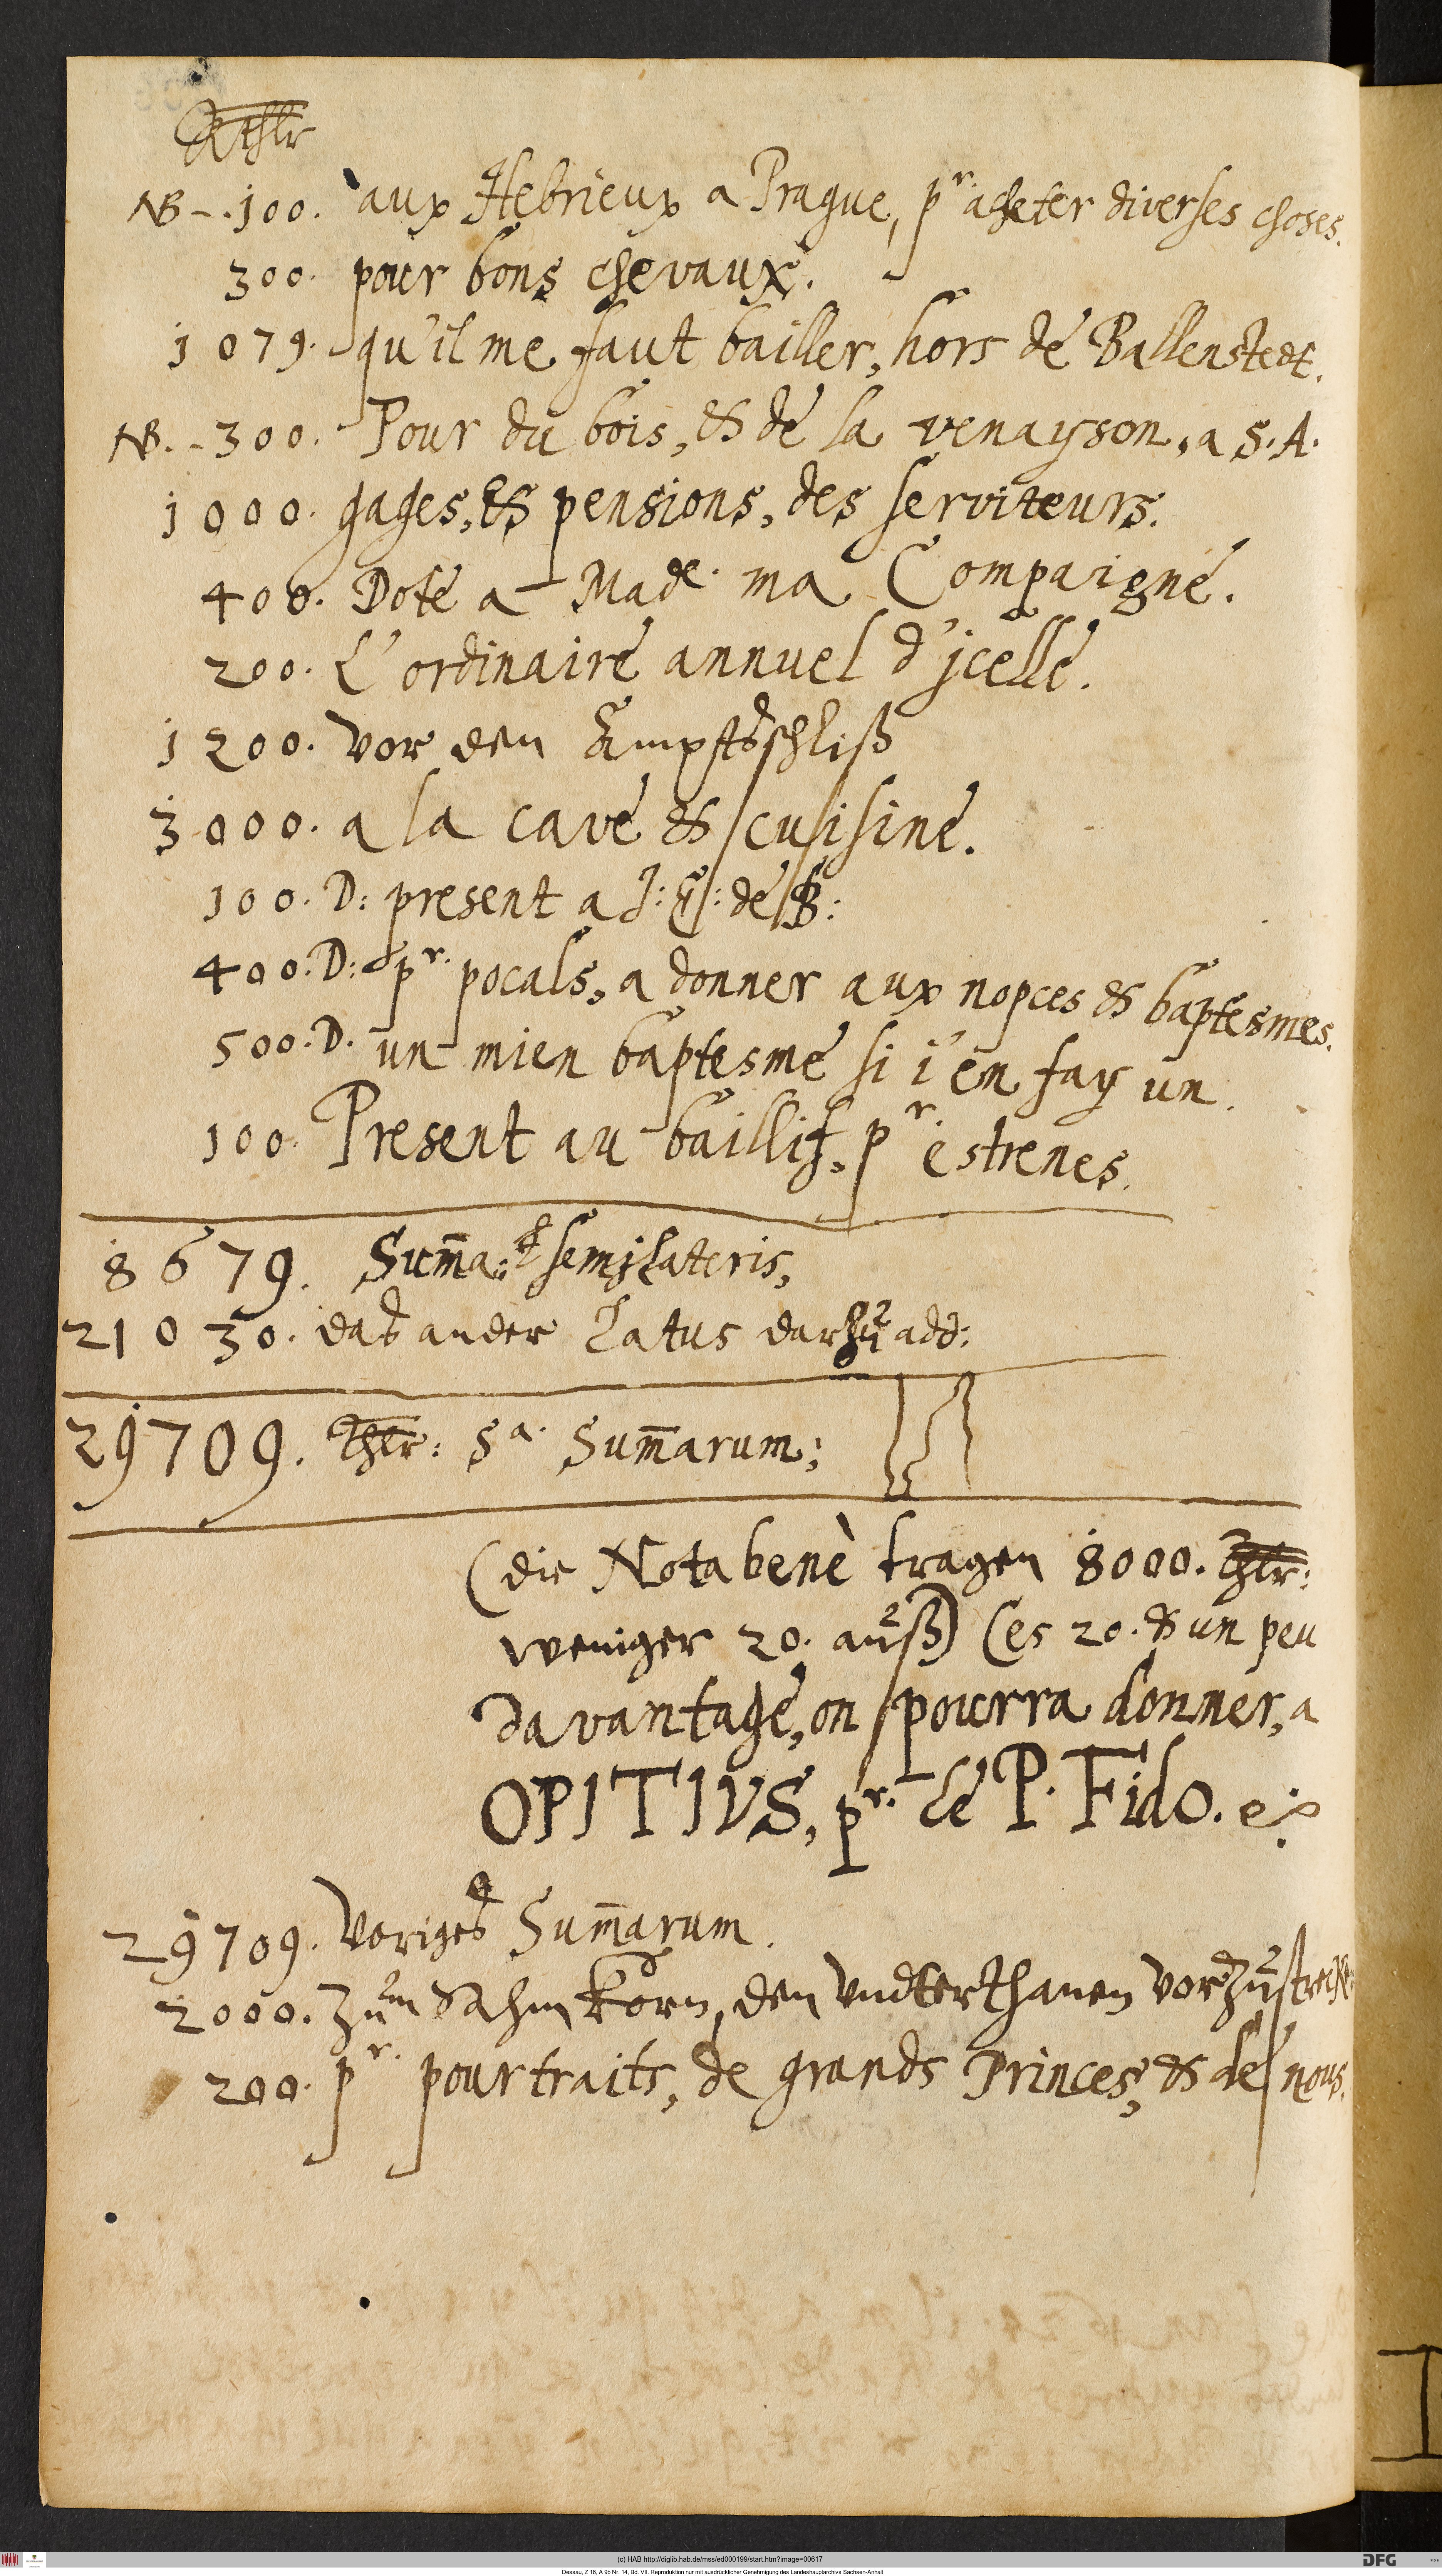 Rthlr
NB -. 100. aux Hebrieux a Prague, pr. acheter diverses choses.
300. pour bons chevaux.
1079. qu'il me faut bailler, hors de Ballenstedt.
NB. - 300. Pour du bois, & de la venayson, a S. A.
1000. gages, & pensions, des serviteurs.
400. Dote a Made. ma Compaigne.
200. L'ordinaire annuel d'jcelle.
1200. vor den Ampts
3000. a la cave & cuisine.
100. D: present a J: E: de B:
400. D: pr. pocals, a donner aux nopces & baptesmes.
500. D. un mien baptesme si i'en fay un.
100. Present au baillif, pr estrenes.
8679. Sum̄a: semjlateris,
21030. das ander Latus darzu add:
29709. thlr: Sa. Sum̄arum;
(die Nota bene tragen 8000. thlr:
weniger 20. auß) (es 20. & un peu
davantage, on pourra donner, a
OPITIUS, pr. le P. Fido.
29709. Voriges Sum̄arum.
2000. Zum Sahmkorn, den Vndterthanen vorzustrecken
200. pr. pourtraits, de grands Princes, & de nous.
(c) HAB http://diglib.hab.de/mss/ed000199/start.htm?image=00617
DFG
Dessau, Z 18, A 9b Nr. 14, Bd. VII. Reproduktion nur mit ausdrücklicher Genehmigung des Landeshauptarchivs Sachsen-Anhalt